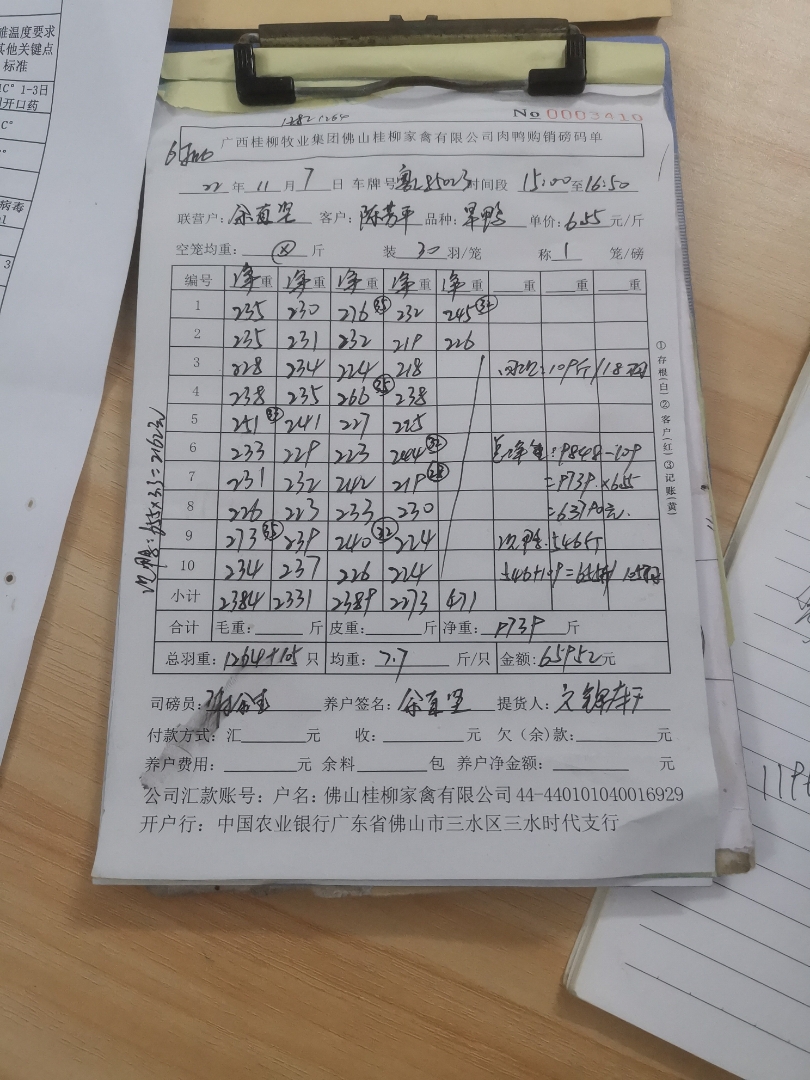 难温度要求
其他关键点
标准
1-3日
开口药
C°
病毒
3
1282 1264
No 0003410
广西桂柳牧业集团佛山桂柳家禽有限公司肉鸭购销磅码单
22年11月7日 车牌号 粤L85023 时间段 15:00至16:50
联营户：余直坚 客户：陈芳平 品种：旱鸭 单价：6.55元/斤
空笼均重：ⓧ斤 装30羽/笼 称1笼/磅
编号 净重 净重 净重 净重 净重 重 重 重
1 235 230 276 (35) 232 245 (32)
2 235 231 232 219 226
3 228 234 224 218 109斤/18羽
4 238 235 266 (35) 238
5 251 (33) 241 227 225
6 233 229 223 244 (32) 总净重：9848-109
7 231 232 242 219 (28) =9739×6.55
8 226 223 233 230 =63790元
9 273 (35) 239 240 (32) 224 次鸭：546斤
10 234 237 226 224 546+109=655斤/105羽
小计 2384 2331 2389 2273 471
合计 毛重：斤 皮重：斤 净重：9739斤
总羽重：1264+105只 均重：7.7斤/只 金额：65952元
司磅员： 养户签名：余直坚 提货人：
付款方式：汇元 收：元 欠（余）款：元
养户费用：元 余料包 养户净金额：元
公司汇款账号：户名：佛山桂柳家禽有限公司44-440101040016929
开户行：中国农业银行广东省佛山市三水区三水时代支行
次鸭：655×3.3=2162元
①存根(白)②客户(红)③记账(黄)